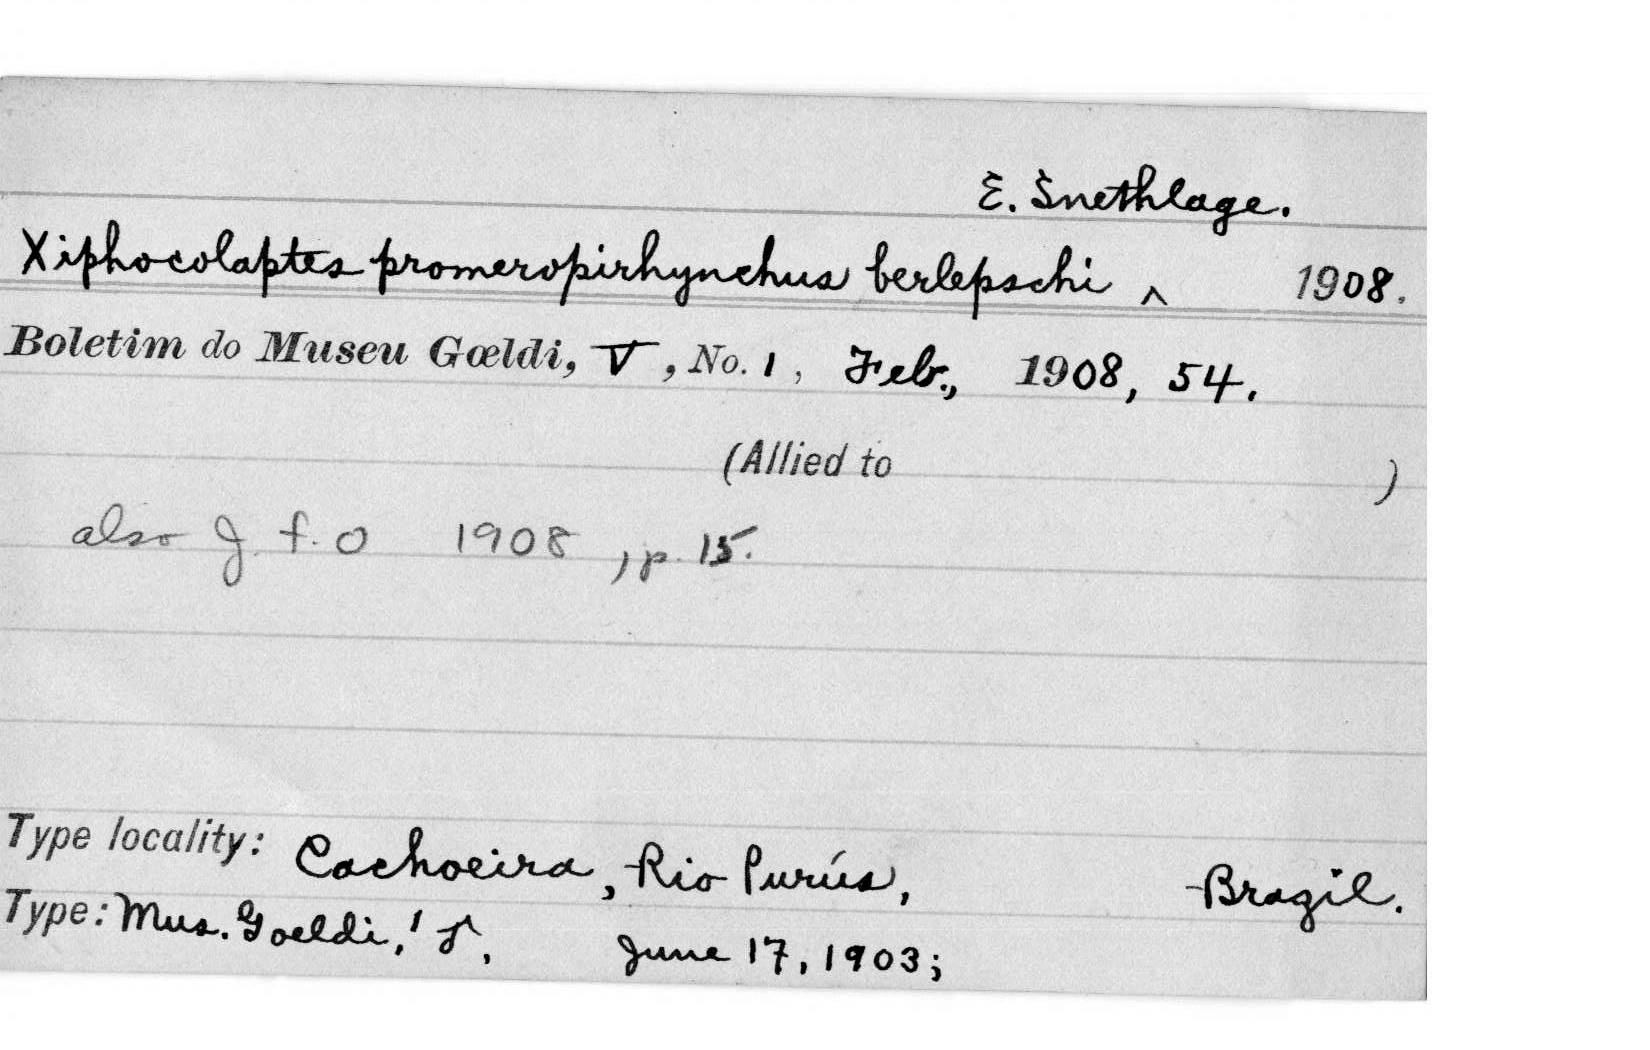 E. Snethlage.
Xiphocolaptes promeropirhynchus berlepschi ^ 1908.
Boletim do Museu Gœldi, V, No. 1, Feb., 1908, 54.
(Allied to )
also J. f. O 1908, p. 15.
Type locality: Cachoeira, Rio Purús, Brazil.
Type: Mus. Goeldi, ♂, June 17, 1903;